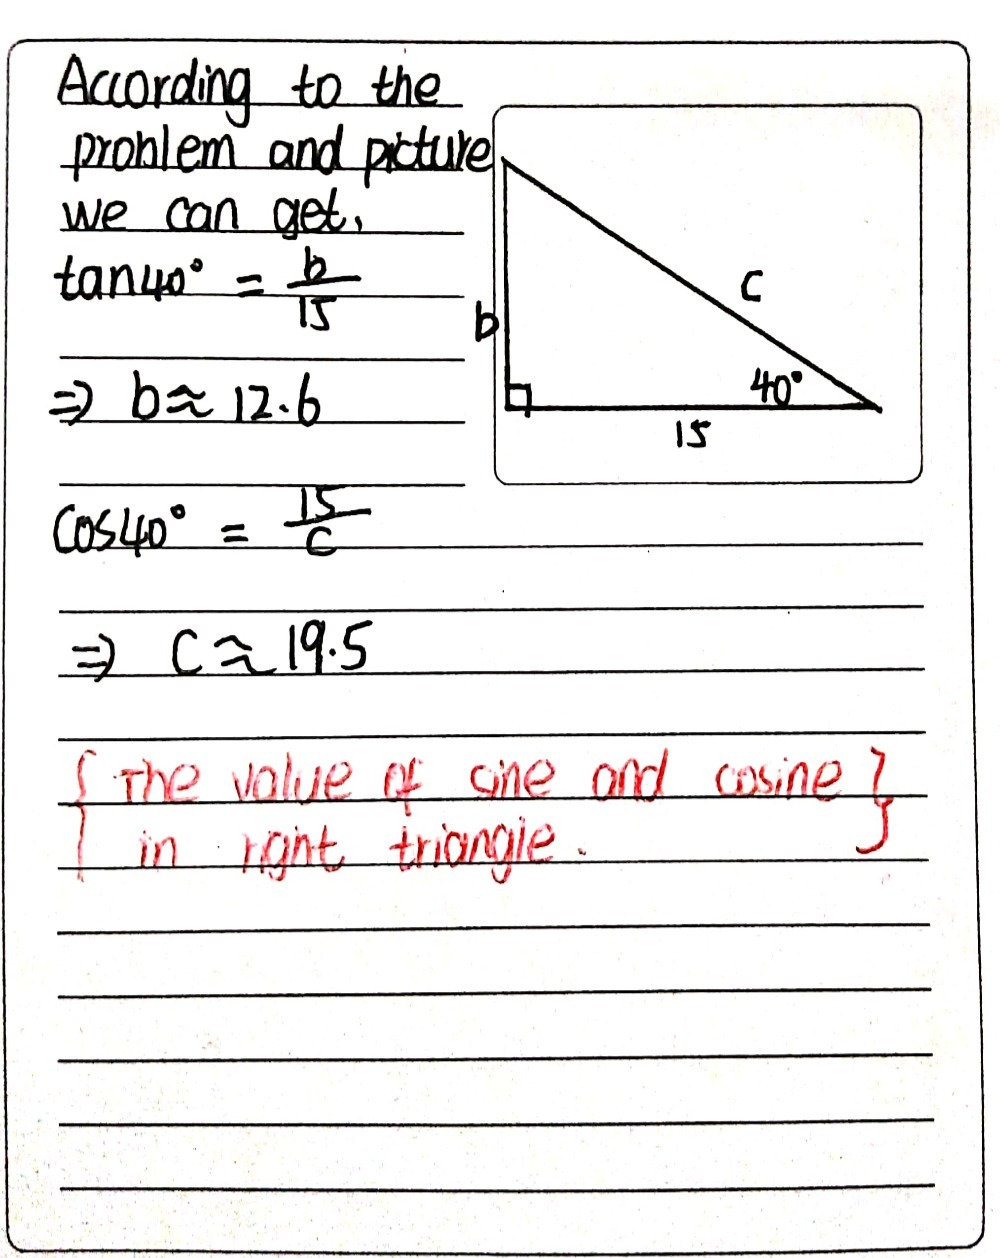 According to the
problem and picture
we can get,
tan40° = b/15
⇒ b≈12.6
cos40° = 15/c
⇒ c≈19.5
b
c
40°
15
{ The value of sine and cosine }
in right triangle.